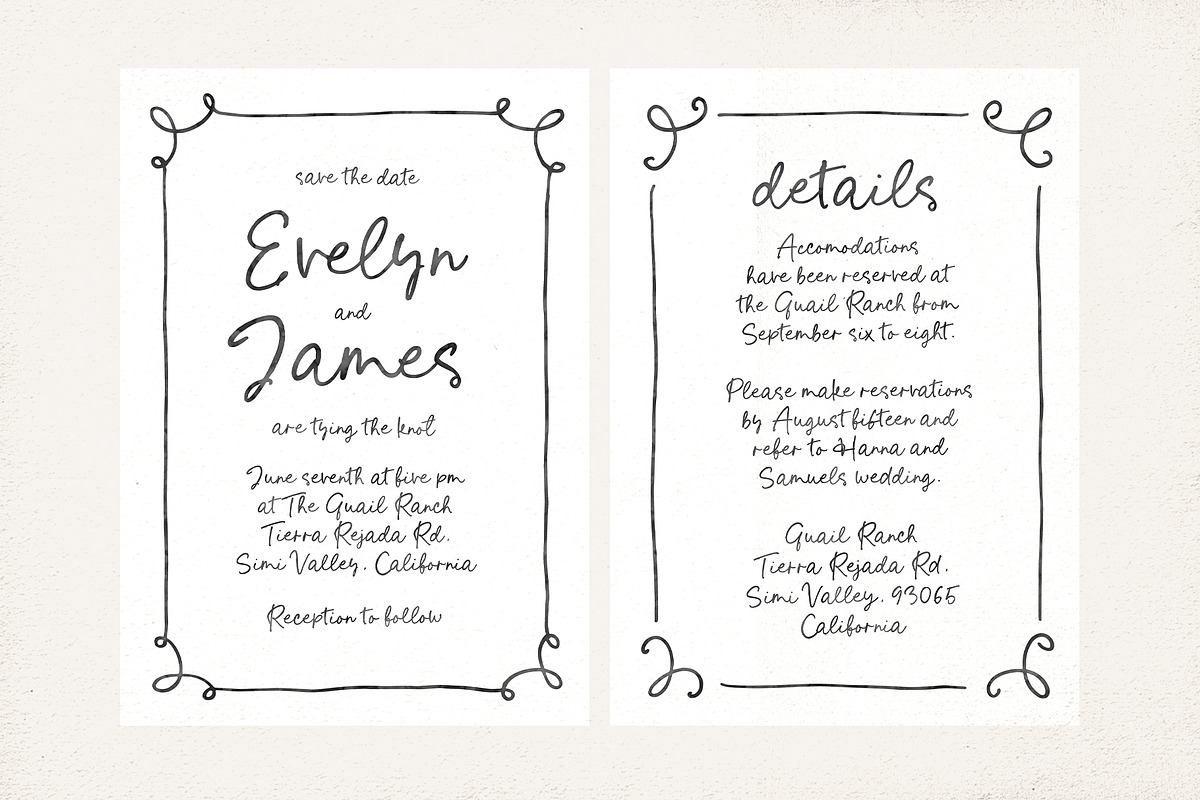 save the date
Evelyn
and
James
are tying the knot
June seventh at five pm
at The Quail Ranch
Tierra Rejada Rd.
Simi Valley, California
Reception to follow
details
Accomodations
have been reserved at
the Quail Ranch from
September six to eight.
Please make reservations
by August fifteen and
refer to Hanna and
Samuels wedding.
Quail Ranch
Tierra Rejada Rd.
Simi Valley, 93065
California